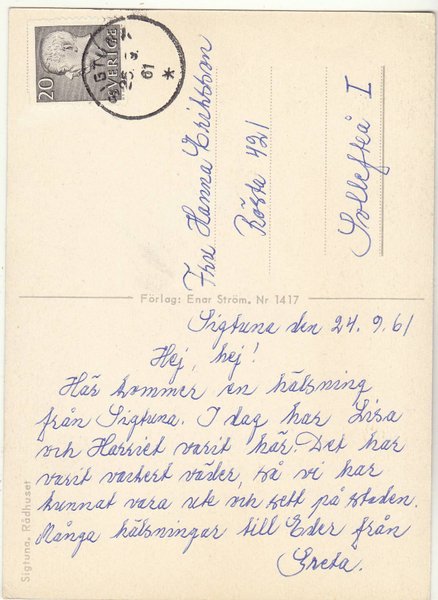 20
SVERIGE
SIGTUNA
61
Fru Hanna Eriksson
Rösta 421
Sollefteå I
Förlag: Enar Ström, Nr 1417
Sigtuna den 24.9.61
Hej, hej!
Här kommer en hälsning
från Sigtuna. I dag har Lisa
och Harriet varit här. Det har
varit vackert väder, så vi har
kunnat vara ute och sett på staden.
Många hälsningar till Eder från
Greta.
Sigtuna. Rådhuset